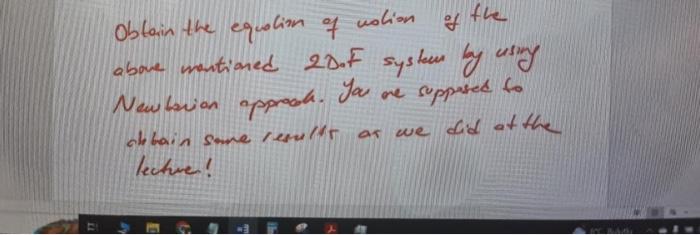 Obtain the equation of motion of the
above mentioned 2DoF system by using
Newtonian approach. You are supposed to
obtain same results as we did at the
lecture!